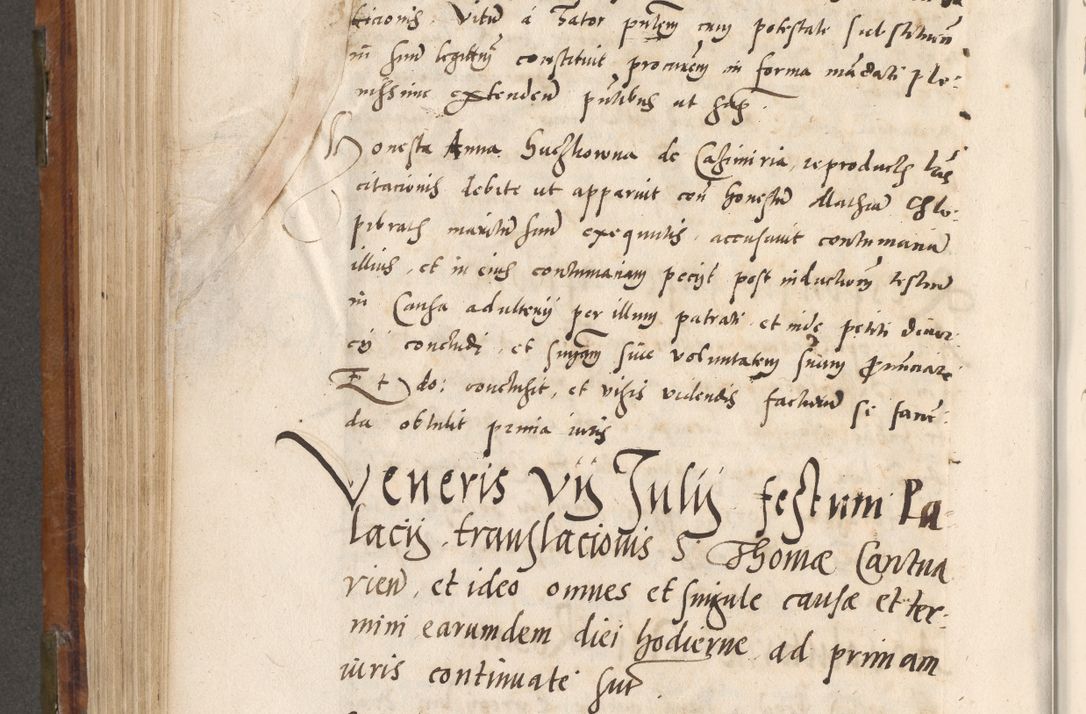 ticionis, Vitū à Dator pñtem cum potestate substituen
in suū legittimū constituit procurem in forma mādati ple:
nissime extendeñ pñtibus ut sup.
Honesta Anna Huczkowna de Casimiria, reproductis lr̃is
citacionis debite ut apparuit con honestū Mathiā Chle:
pibrath maritū suū exequutis, accusavit contumaciā
illius, et in eius contumaciam peciit post inductionē testiū
in Causa adulterii per illum patrati et inde petiti divor:
cii concludi, et sniam sive voluntatem suam Pronūciari
Et do: conclusit, et visis videndis factureū se facie:
da obtulit prima iuris
Veneris Vij Julij festum Pa
lacij translacionis S. Thomæ Cantua
rieñ, et ideo omnes et singule causæ et ter:
mini earumdem diei hodierne ad primam
iuris continuate sūt